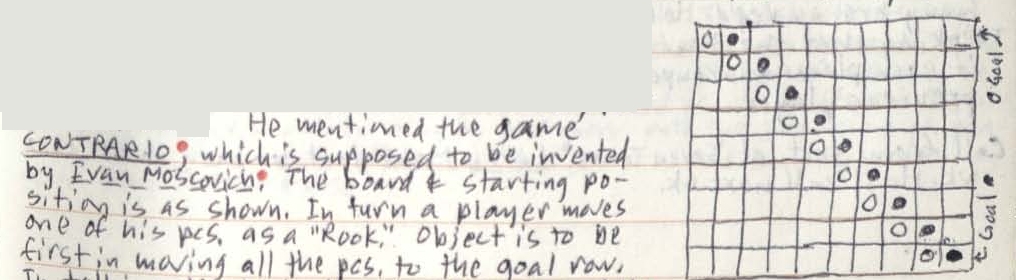 He mentioned the game
CONTRARIO, which is supposed to be invented
by Evan Moscovich. The board & starting po-
sition is as shown. In turn a player moves
one of his pcs. as a "Rook." Object is to be
first in moving all the pcs. to the goal row.
O Goal ↑
← Goal ●